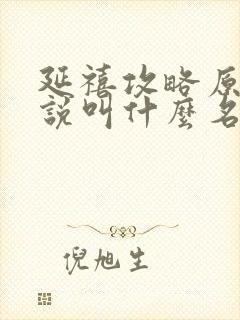 延禧攻略原
說叫什麼名
倪旭生